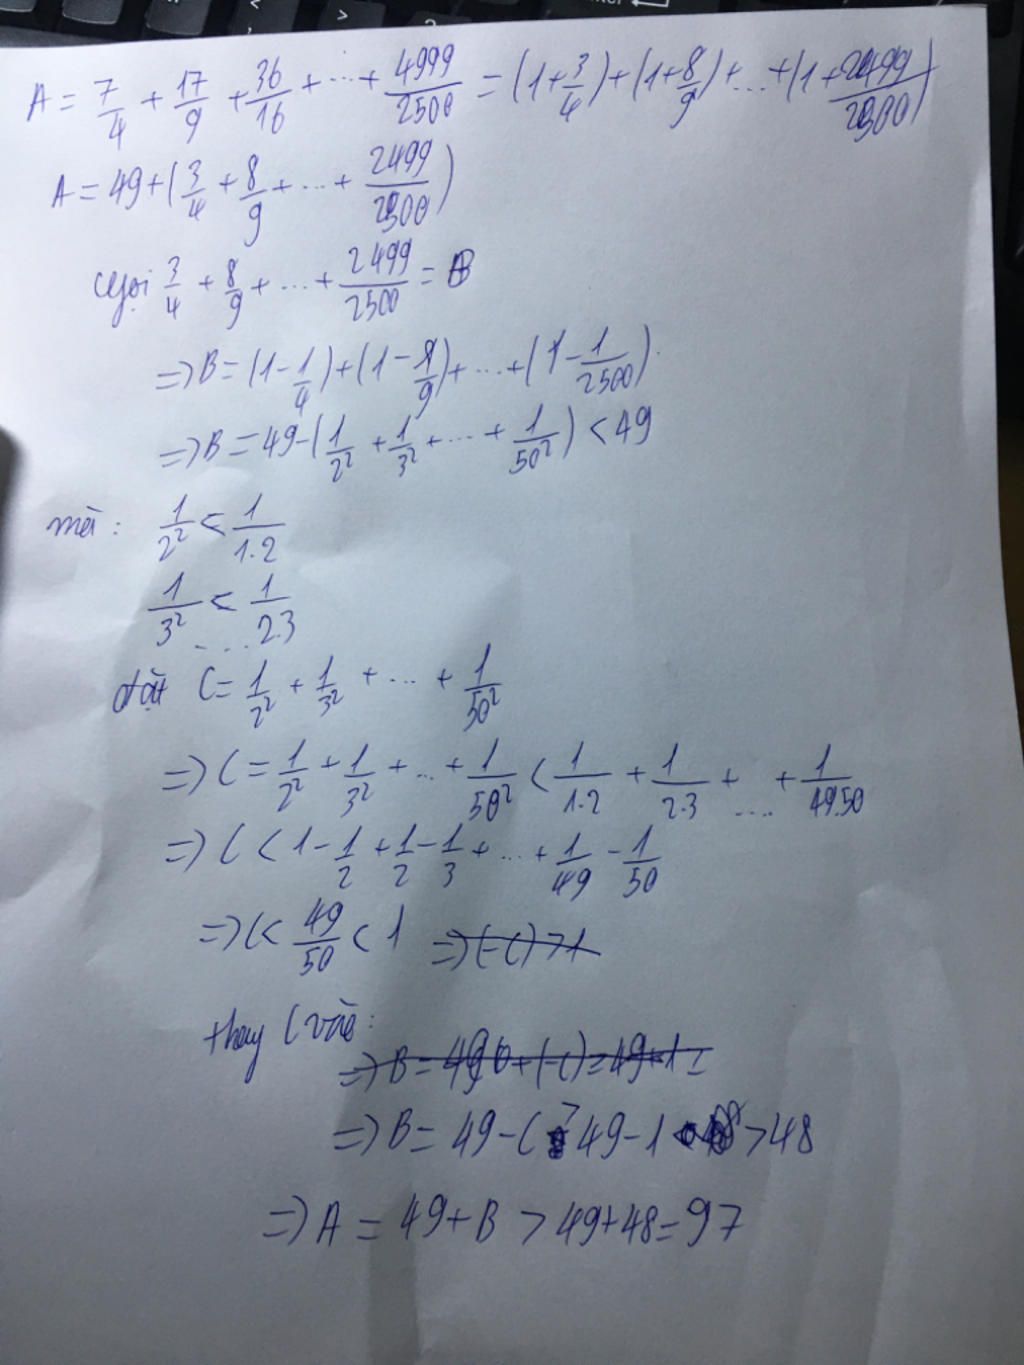 A = 7/4 + 17/9 + 36/16 + ... + 4999/2500 = (1 + 3/4) + (1 + 8/9) + ... + (1 + 2499/2500)
A = 49 + (3/4 + 8/9 + ... + 2499/2500)
Gọi 3/4 + 8/9 + ... + 2499/2500 = B
=> B = (1 - 1/4) + (1 - 1/9) + ... + (1 - 1/2500)
=> B = 49 - (1/2² + 1/3² + ... + 1/50²) < 49
mà : 1/2² < 1/1.2
1/3² < 1/2.3
....
đặt C = 1/2² + 1/3² + ... + 1/50²
=> C = 1/2² + 1/3² + ... + 1/50² < 1/1.2 + 1/2.3 + .... + 1/49.50
=> C < 1 - 1/2 + 1/2 - 1/3 + ... + 1/49 - 1/50
=> C < 49/50 < 1 => (-C) > 1
thay C vào :
=> B = 49 + (-C) = 49 + 1 =
=> B = 49 - C > 49 - 1 > 48
=> A = 49 + B > 49 + 48 = 97